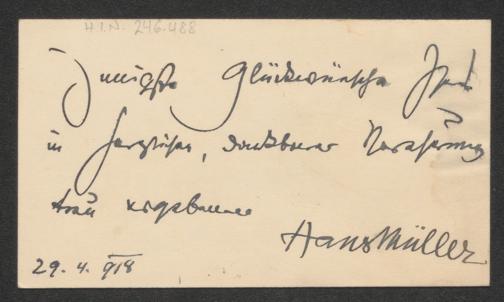 H.I.N. 246.488
Innigste Glückwünsche Ihres
in herzlicher, dankbarer Verehrung
treu ergebenen
Hans Müller
29. 4. 918